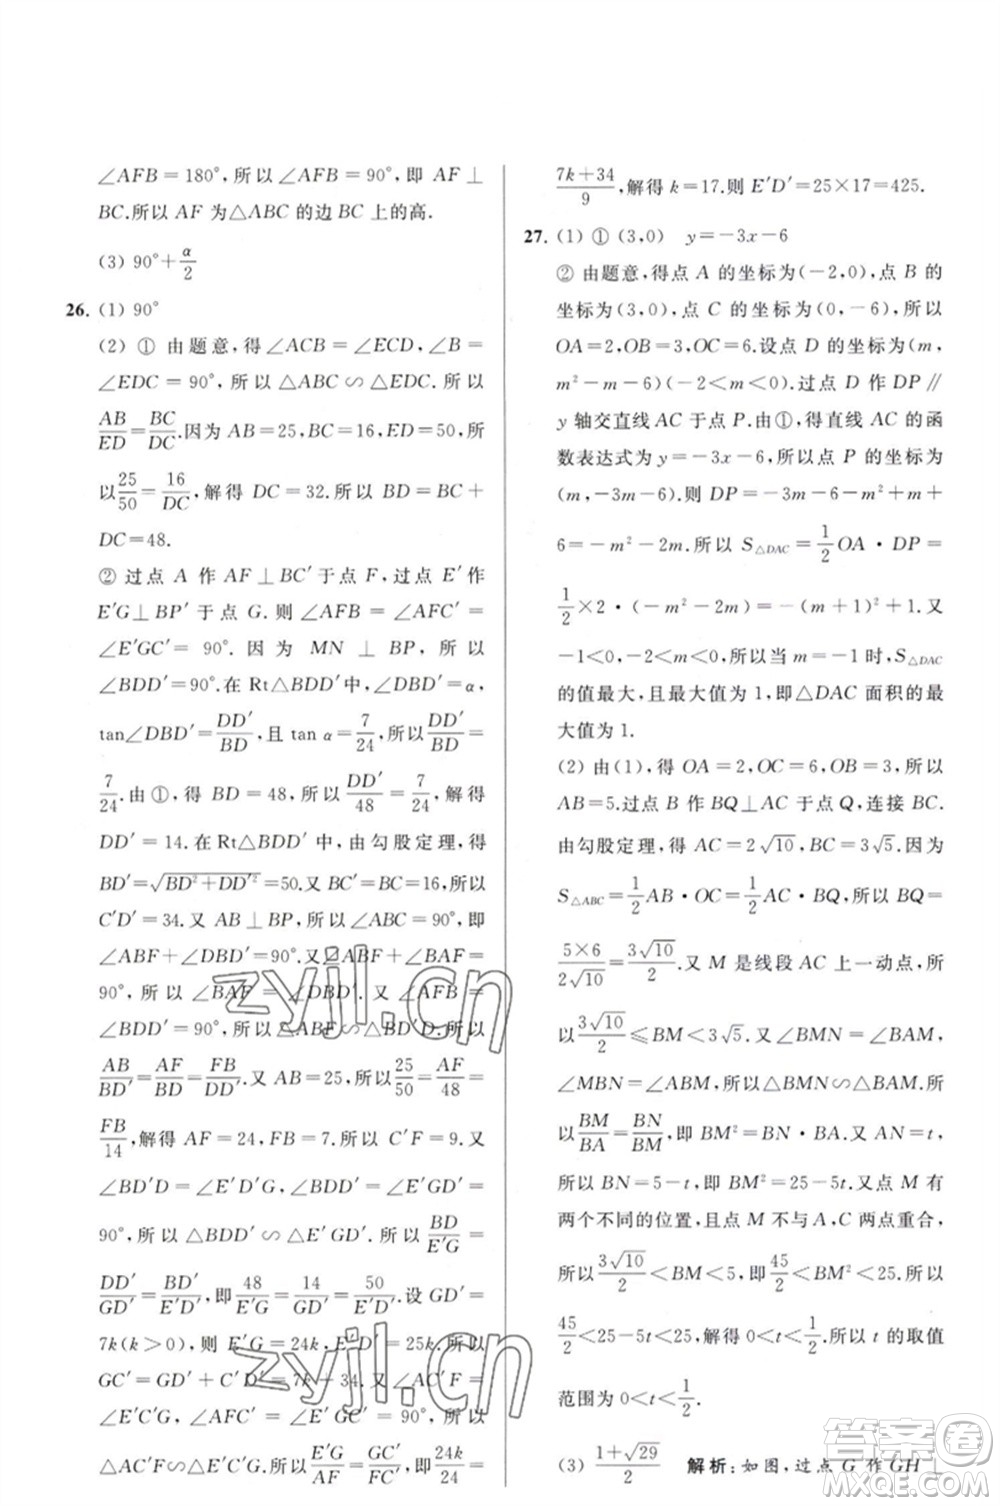 ∠AFB=180°,所以∠AFB=90°,即 AF⊥
BC.所以 AF 为△ABC 的边 BC 上的高.
(3) 90°+α/2
26. (1) 90°
(2) ① 由题意,得∠ACB=∠ECD,∠B=
∠EDC=90°,所以△ABC∽△EDC.所以
AB/ED=BC/DC.因为 AB=25,BC=16,ED=50,所
以25/50=16/DC,解得 DC=32.所以 BD=BC+
DC=48.
② 过点 A 作 AF⊥BC′于点 F,过点 E′作
E′G⊥BP′于点 G.则∠AFB=∠AFC′=
∠E′GC′=90°.因为 MN⊥BP,所以
∠BDD′=90°.在 Rt△BDD′中,∠DBD′=α,
tan∠DBD′=DD′/BD,且 tan α=7/24,所以DD′/BD=
7/24.由①,得 BD=48,所以DD′/48=7/24,解得
DD′=14.在 Rt△BDD′中,由勾股定理,得
BD′=√(BD²+DD′²)=50.又 BC′=BC=16,所以
C′D′=34.又 AB⊥BP,所以∠ABP=90°,即
∠ABF+∠DBD′=90°.又∠ABF+∠BAF=
90°,所以∠BAF=∠DBD′.又∠AFB=
∠BDD′=90°,所以△ABF∽△BD′D.所以
AB/BD′=AF/BD=FB/DD′.又 AB=25,所以25/50=AF/48=
FB/14,解得 AF=24,FB=7.所以 C′F=9.又
∠BD′D=∠E′D′G,∠BDD′=∠E′GD′=
90°,所以△BDD′∽△E′GD′.所以BD/E′G=
DD′/GD′=BD′/E′D′,即48/E′G=14/GD′=50/E′D′.设 GD′=
7k(k>0),则 E′G=24k,E′D′=25k.所以
GC′=GD′+C′D′=7k+34.又∠AC′F=
∠E′C′G,∠AFC′=∠E′GC′=90°,所以
△AC′F∽△E′C′G.所以E′G/AF=GC′/FC′,即24k/24=
7k+34/9,解得 k=17.则 E′D′=25×17=425.
27. (1) ① (3,0) y=-3x-6
② 由题意,得点 A 的坐标为(-2,0),点 B 的
坐标为(3,0),点 C 的坐标为(0,-6),所以
OA=2,OB=3,OC=6.设点 D 的坐标为(m,
m²-m-6)(-2<m<0).过点 D 作 DP∥
y 轴交直线 AC 于点 P.由①,得直线 AC 的函
数表达式为 y=-3x-6,所以点 P 的坐标为
(m,-3m-6).则 DP=-3m-6-m²+m+
6=-m²-2m.所以 S△DAC=1/2OA·DP=
1/2×2·(-m²-2m)=-(m+1)²+1.又
-1<0,-2<m<0,所以当 m=-1时,S△DAC
的值最大,且最大值为 1,即△DAC 面积的最
大值为 1.
(2) 由(1),得 OA=2,OC=6,OB=3,所以
AB=5.过点 B 作 BQ⊥AC 于点 Q,连接 BC.
由勾股定理,得 AC=2√10,BC=3√5.因为
S△ABC=1/2AB·OC=1/2AC·BQ,所以 BQ=
5×6/2√10=3√10/2.又 M 是线段 AC 上一动点,所
以3√10/2≤BM<3√5.又∠BMN=∠BAM,
∠MBN=∠ABM,所以△BMN∽△BAM.所
以BM/BA=BN/BM,即 BM²=BN·BA.又 AN=t,
所以 BN=5-t.所以 BM²=25-5t.又点 M 有
两个不同的位置,且点 M 不与 A,C 两点重合,
所以3√10/2<BM<5,即45/2<BM²<25.所以
45/2<25-5t<25,解得 0<t<1/2.所以 t 的取值
范围为 0<t<1/2.
(3) 1+√29/2 解析:如图,过点 G 作 GH
zyjl.cn
zyjl.cn
答案圈
MXQE.COM